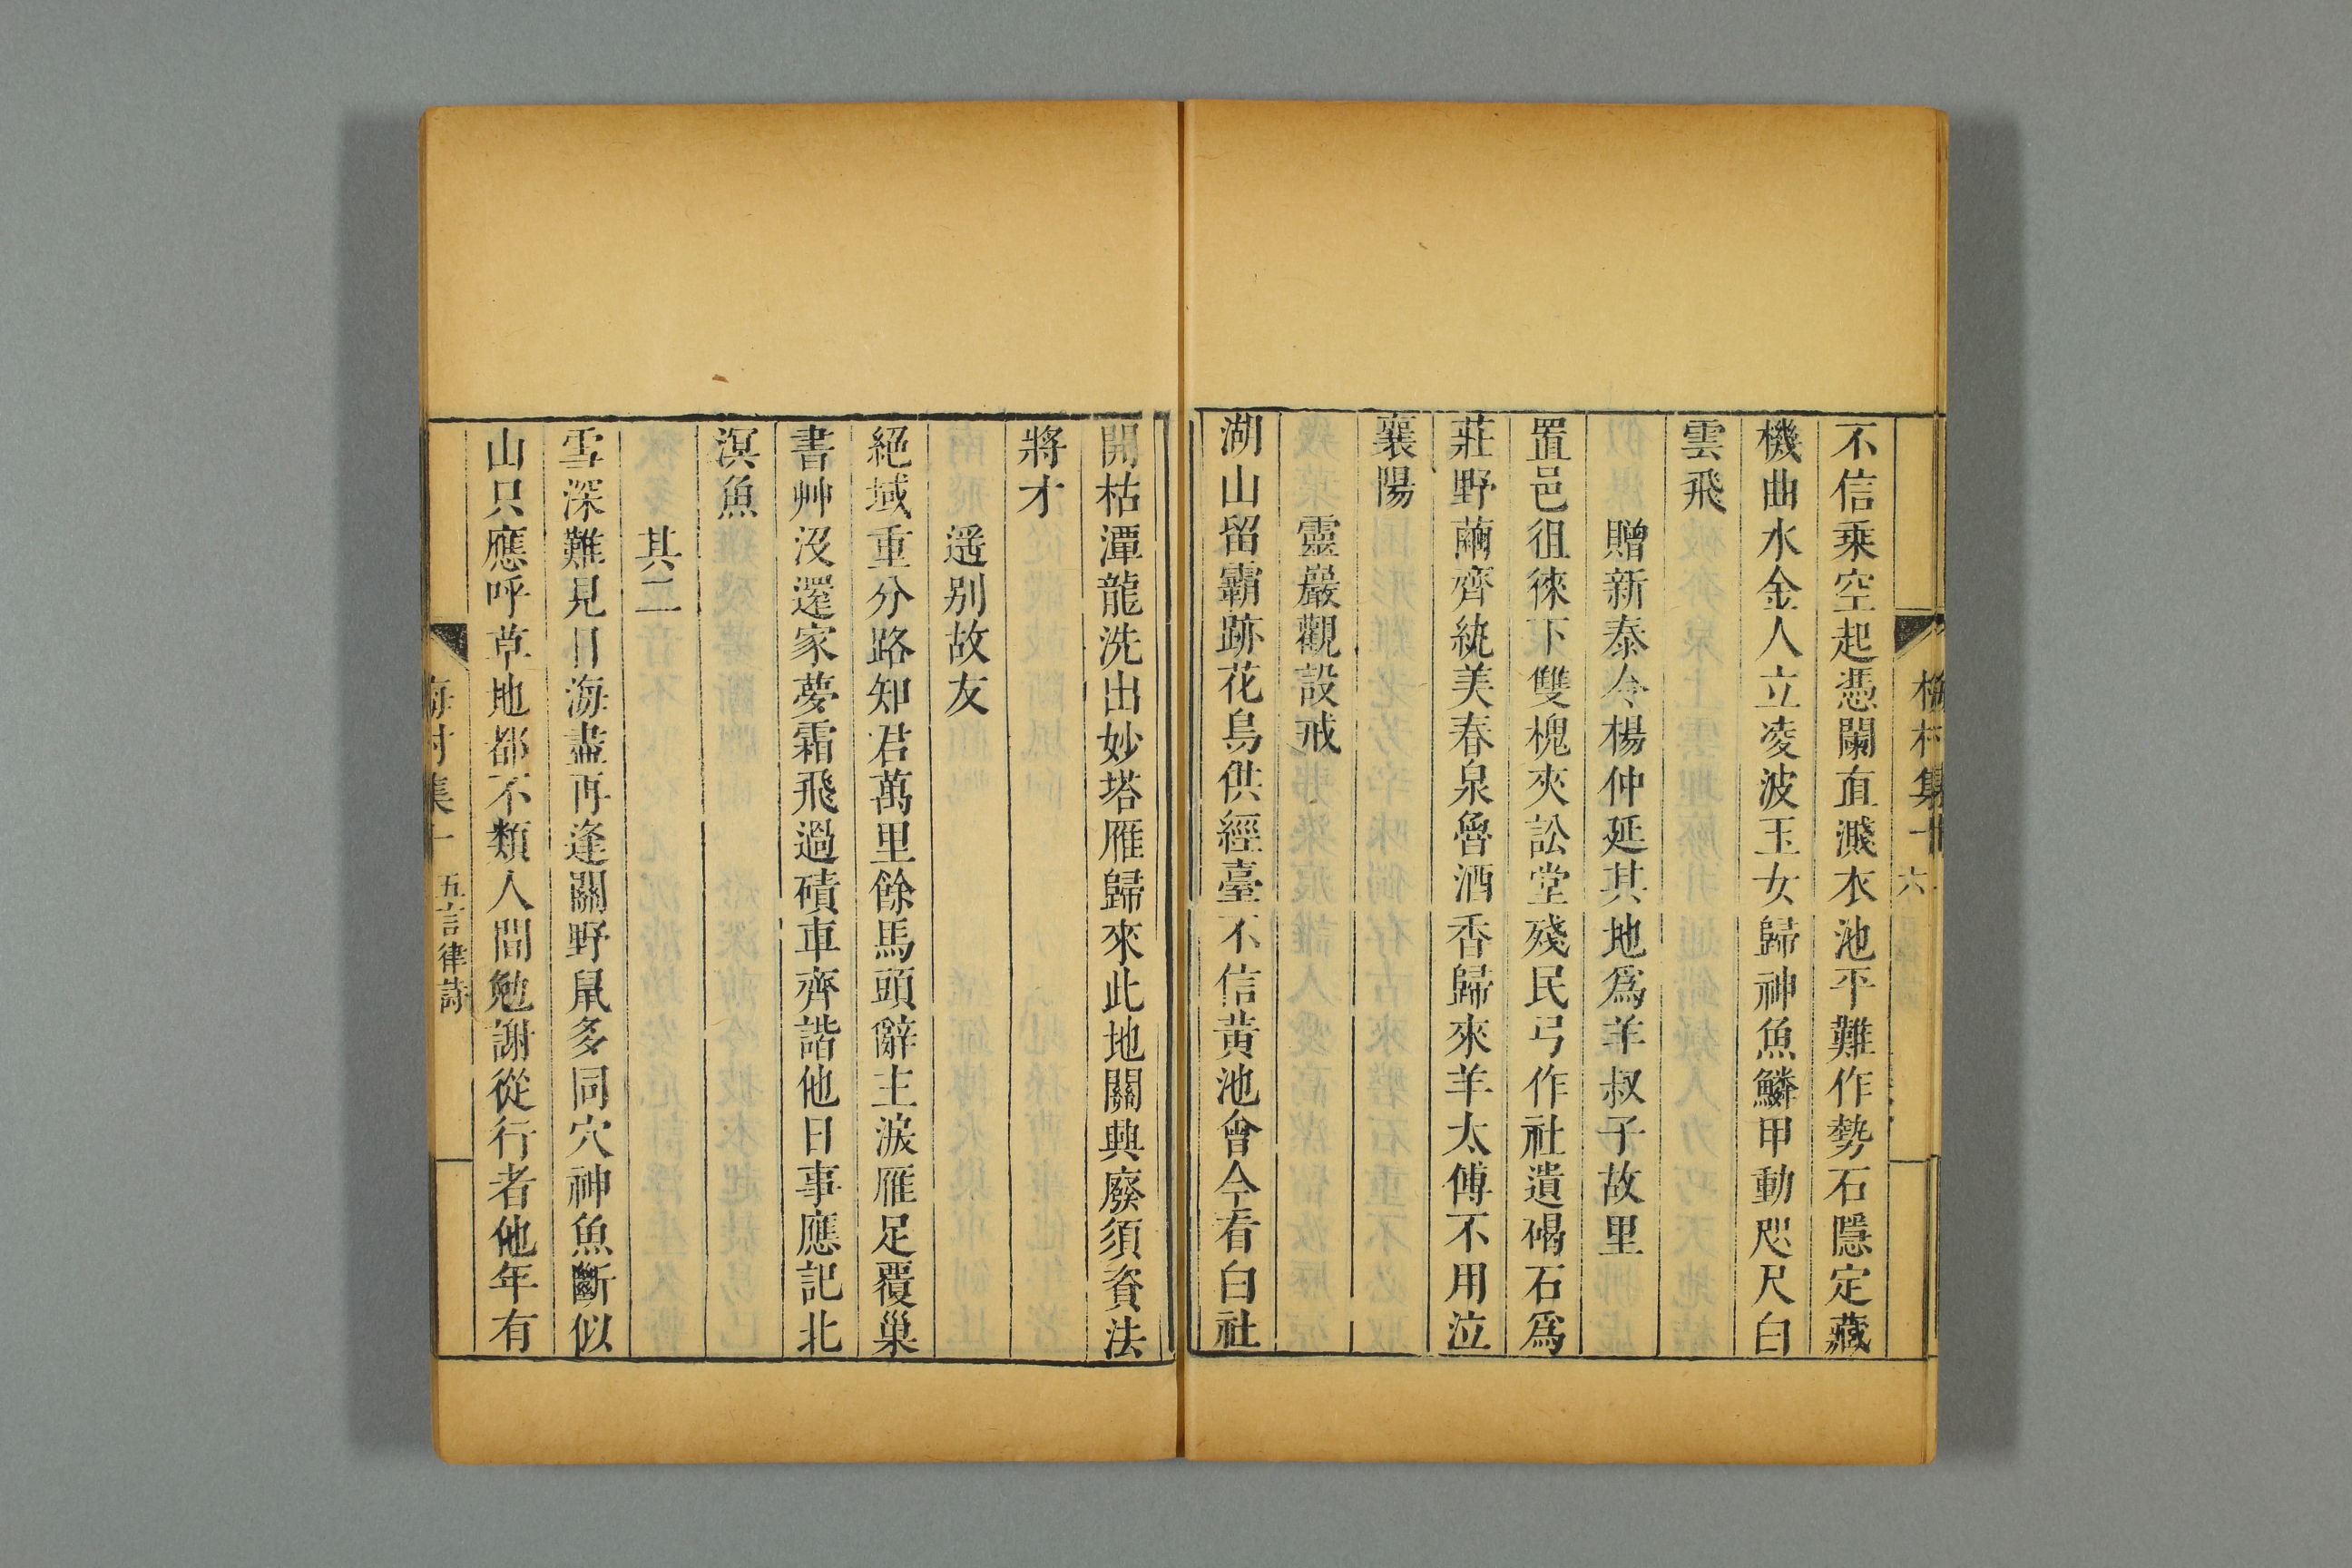 梅村集十 六
不信乗空起憑闌直濺衣池平難作勢石隱定藏
機曲水金人立凌波玉女歸神魚鱗甲動咫尺白
雲飛
贈新泰令楊仲延其地爲羊叔子故里
置邑徂徠下雙槐夾訟堂殘民弓作社遺碣石爲
莊野繭齊紈美春泉魯酒香歸來羊太傅不用泣
襄陽
靈巖觀設戒
湖山留霸跡花鳥供經臺不信黄池會今看白社
開枯潭龍洗出妙塔雁歸來此地關興廢須資法
將才
遥别故友
絕域重分路知君萬里餘馬頭辭主淚雁足覆巢
書艸没還家夢霜飛過磧車齊諧他日事應記北
溟魚
其二
雪深難見日海盡再逢關野鼠多同穴神魚斷似
山只應呼草地都不類人間勉謝從行者他年有
梅村集十 五言律詩